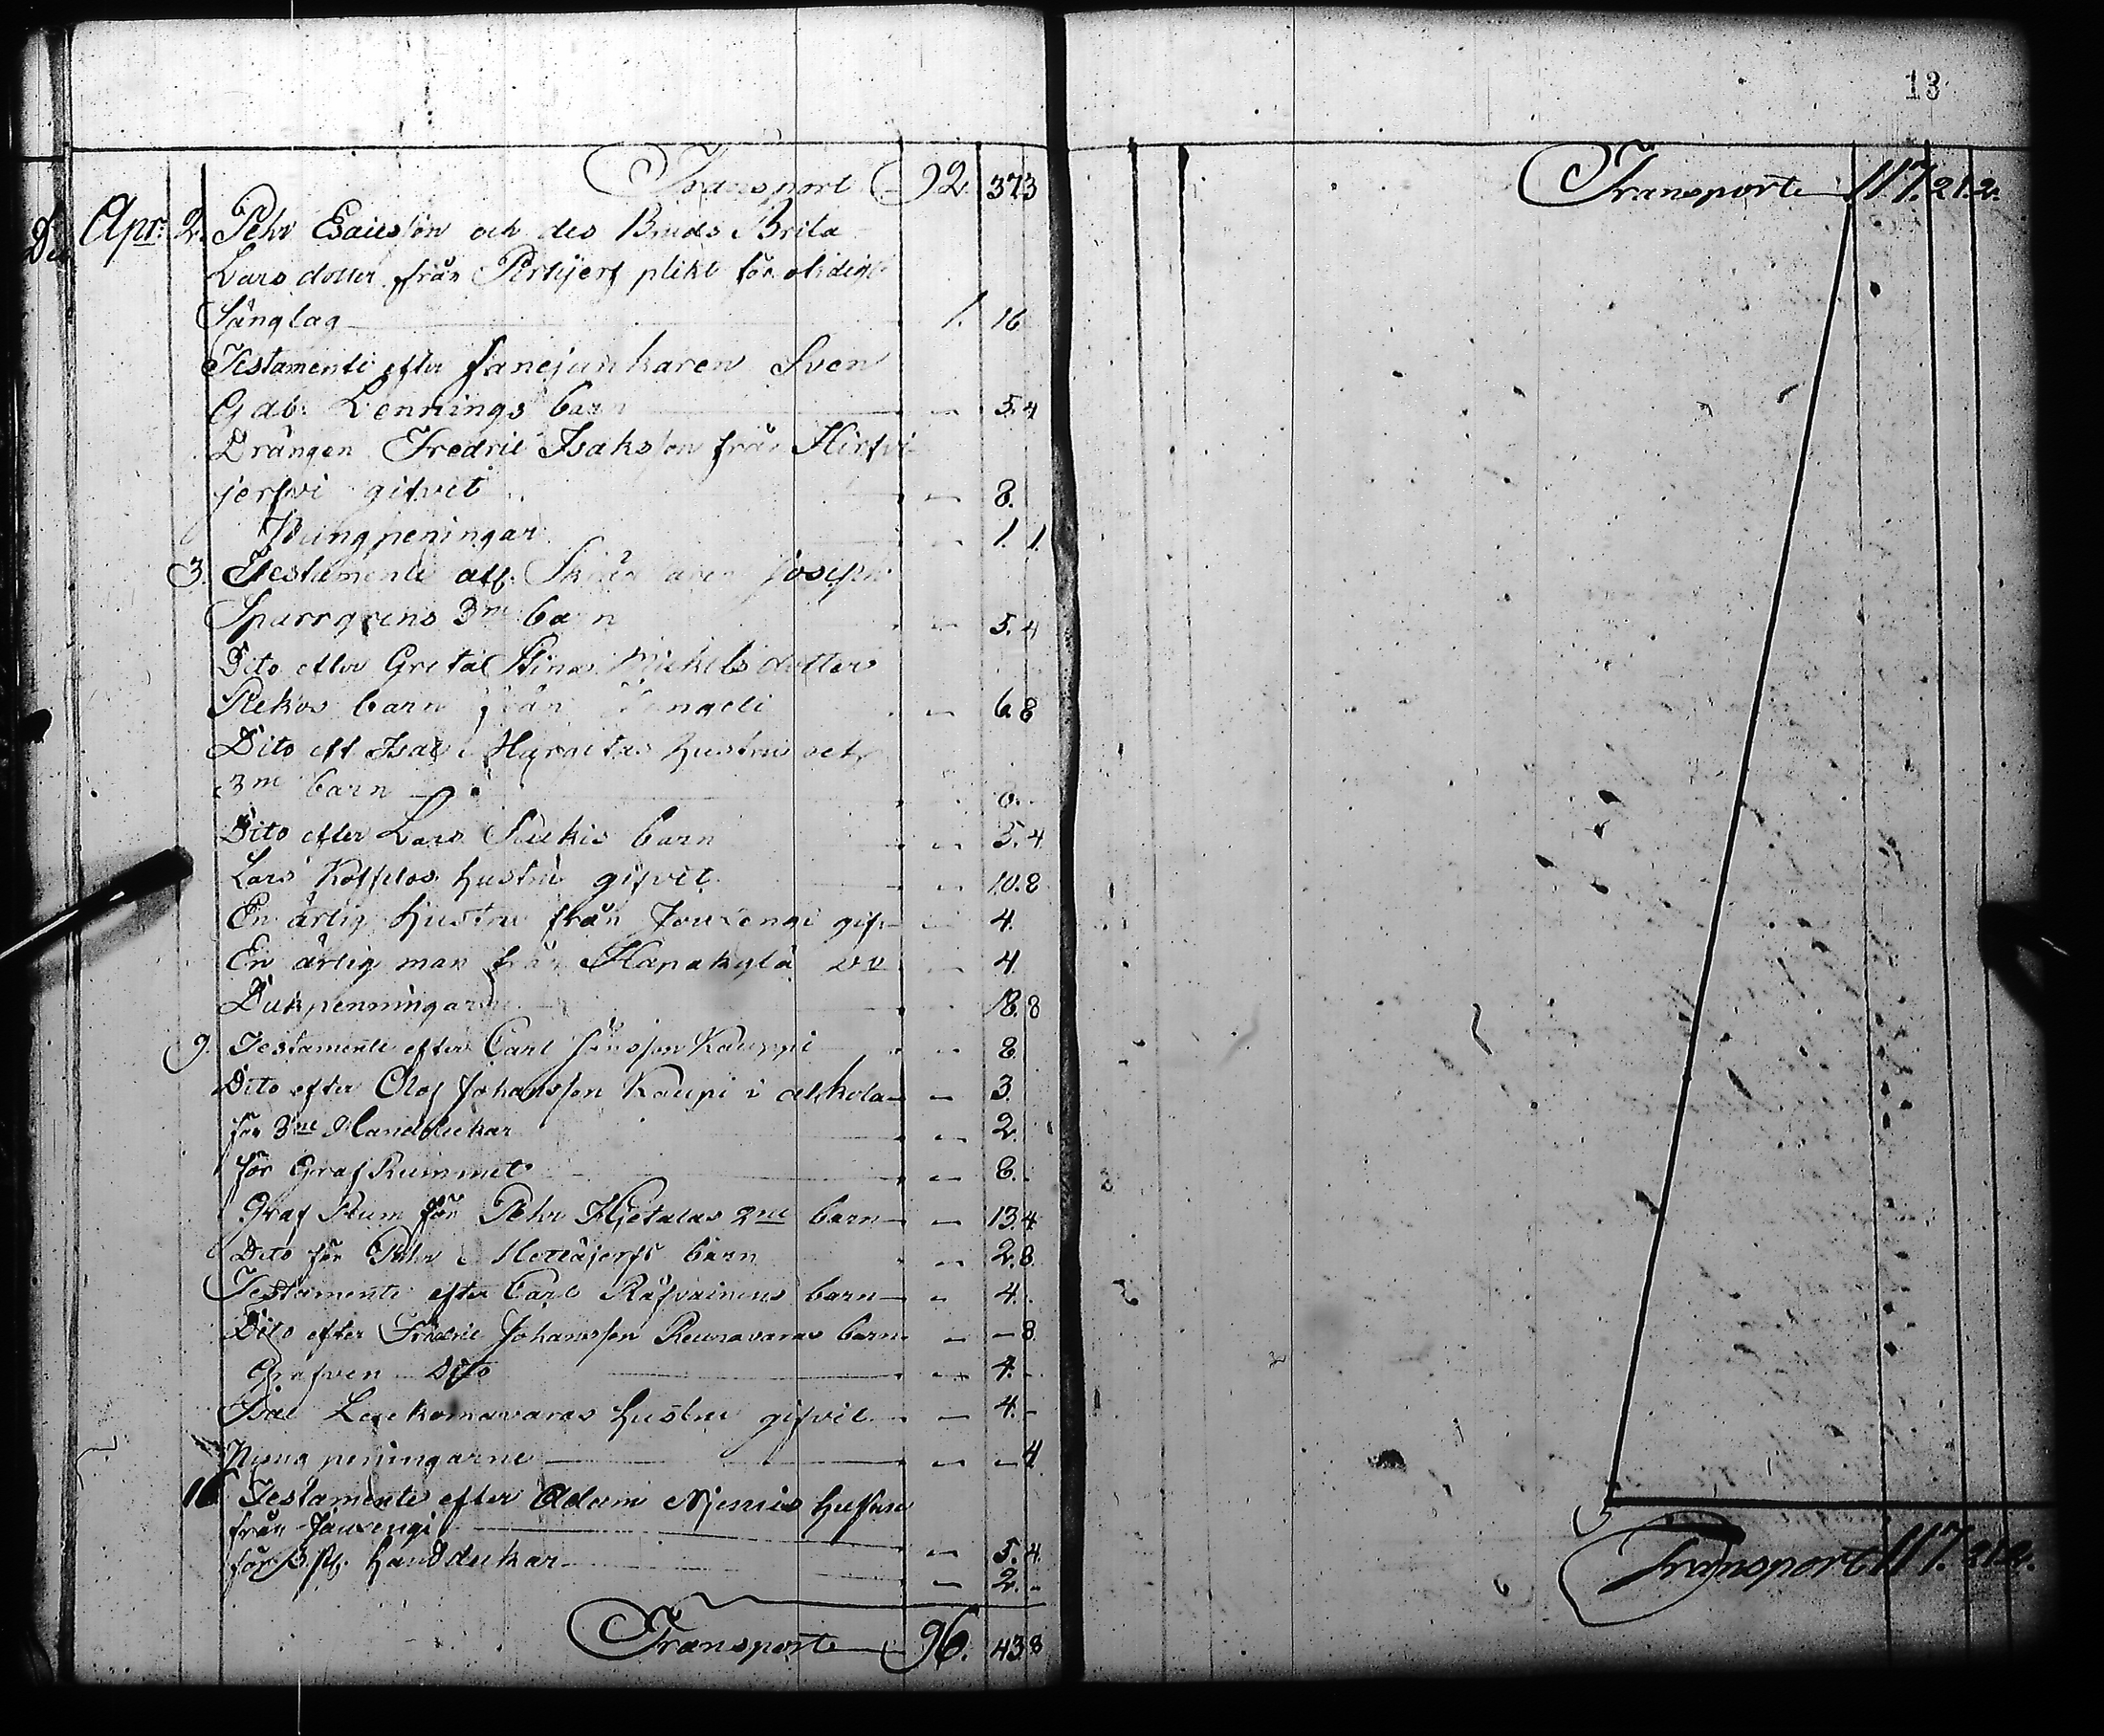 Transport 92. 37 3
Apr: 2. Pehr Esaiesson och des Bruds Brita
Lars dotter från Pirtijerf plikt för otidigt
Sänglag 1. 16
Testamente efter Fanejunkaren Sven
Gab: Lennings barn 5. 4
Drängen Fredric Isaksson från Hirfvi
jerfvi gifvit 8.
Pungpeningar 1. 1.
3. Testamente Joseph
Sparrgrens 3ne barn 5. 4
Dito efter Greta Stina Mickelsdotter
barn från 6 8
Dito eft Isac Hustru och
3ne barn
Dito efter Lars barn 5. 4
Lars hustru gifvit 10. 8
En ärlig hustru från Jouxengi gif- 4.
En ärlig man från Hapakylä 4.
Dukpenningar 18. 8
9. Testamente efter Carl Jönsson Kauppi 8
Dito efter Olof Johansson Kaupi i alkola 3.
för 3ne Handdukar 2
för Graf Rummet 8.
Graf Rum för Pehr Hjetalas 2ne barn 13. 4
Dito för Pehr barn 2. 8
Testamente efter Carl Räfvainens barn 4.
Dito efter Fredric Johansson Reunavaras barn 8
Grafven Dito 4.
Isac hustru gifvit 4. -
Pung peningarne 4
16 Testamente efter Adam Njemis hustru
från Jouxengi 5. 4.
för Handdukar 2. -
Transporte 96. 43 8
13
Transporte 117. 21. 2.
Transport 117. 21. 2.